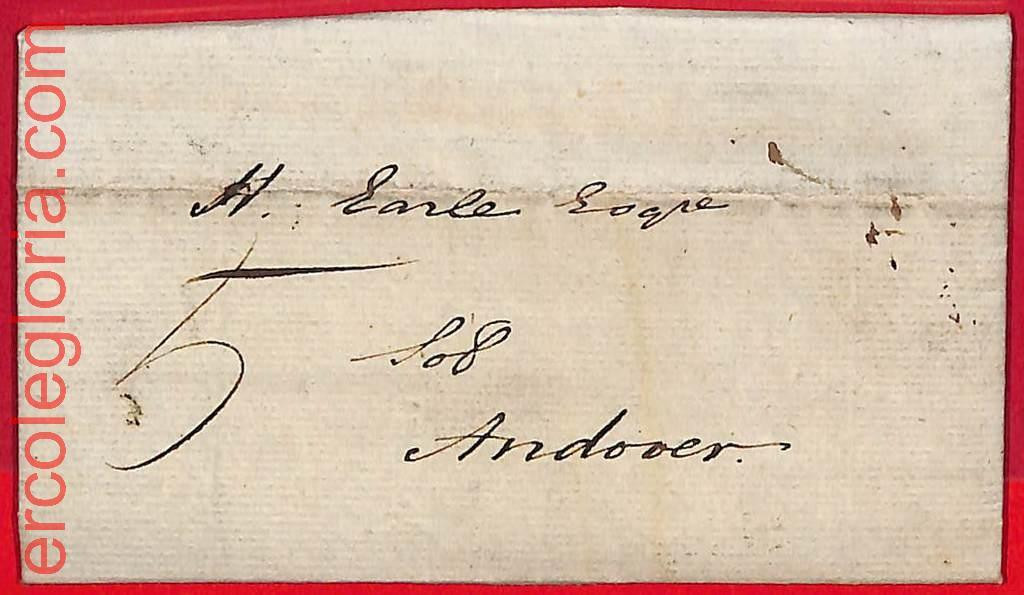 H. Earle Esqre
5
Sol
Andover.
ercolegloria.com